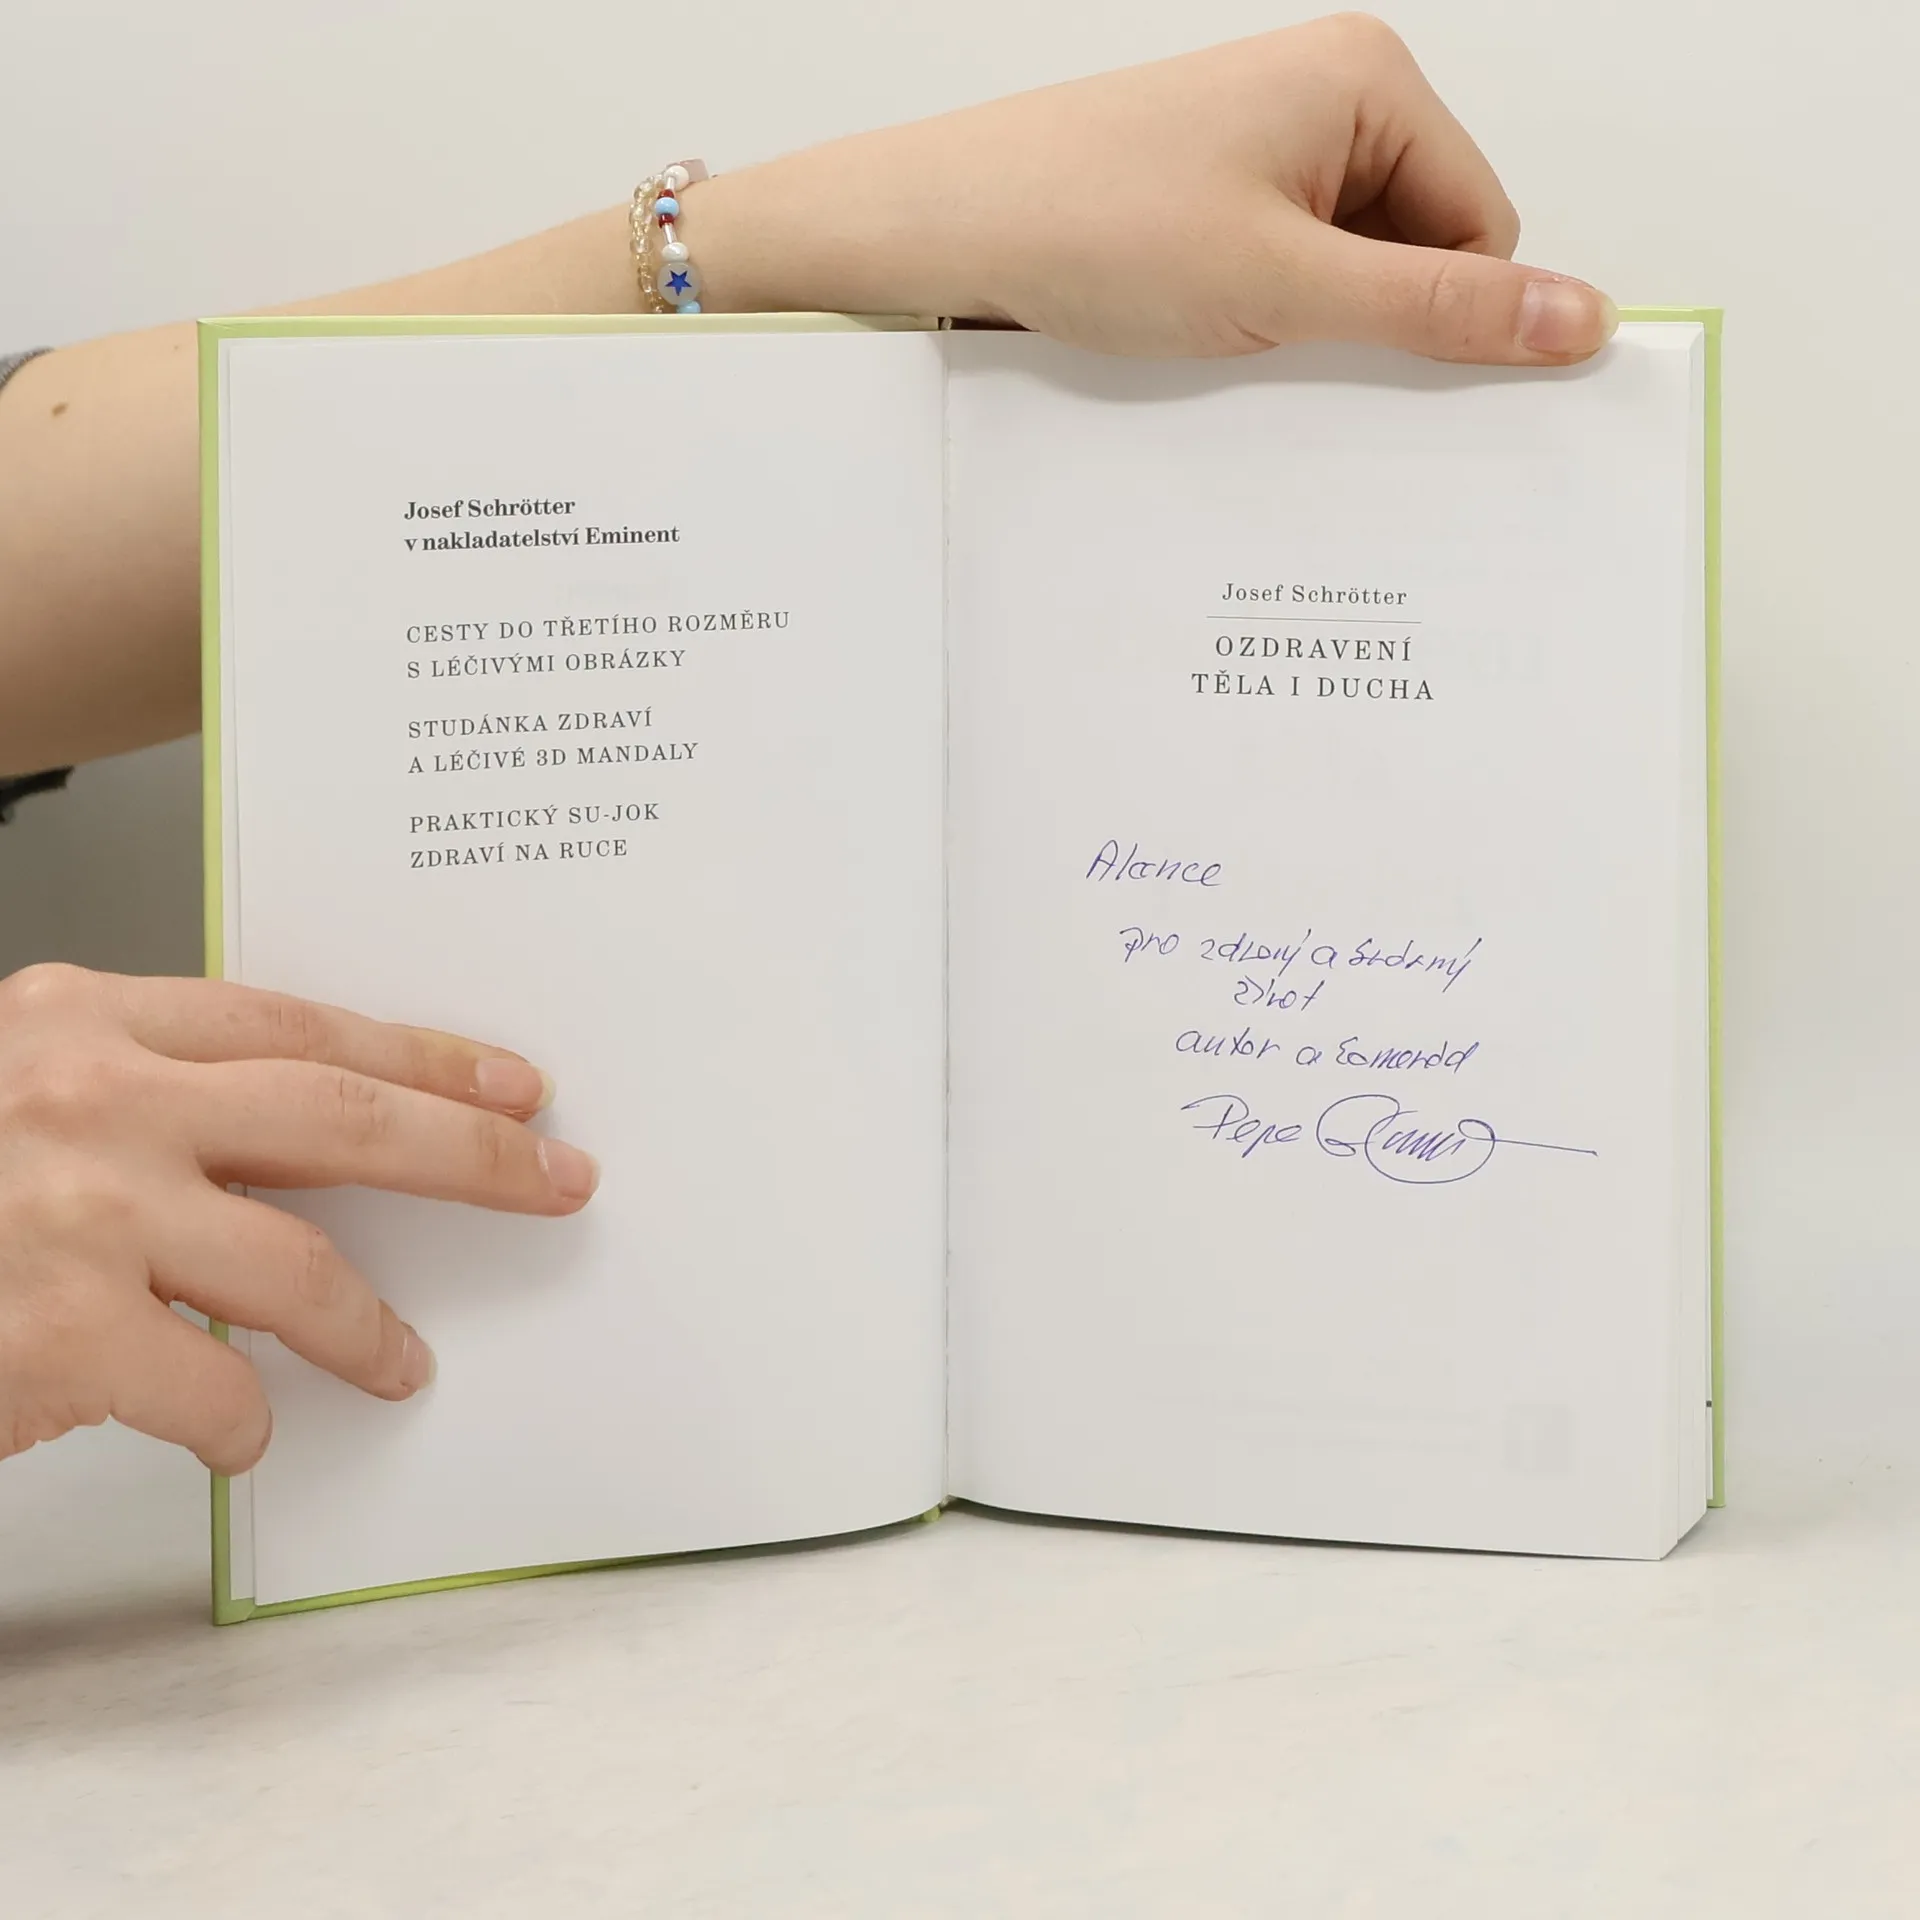 Josef Schrötter
v nakladatelství Eminent
CESTY DO TŘETÍHO ROZMĚRU
S LÉČIVÝMI OBRÁZKY
STUDÁNKA ZDRAVÍ
A LÉČIVÉ 3D MANDALY
PRAKTICKÝ SU-JOK
ZDRAVÍ NA RUCE
Josef Schrötter
OZDRAVENÍ
TĚLA I DUCHA
Alence
pro zdravý a
život
autor a
Pepa